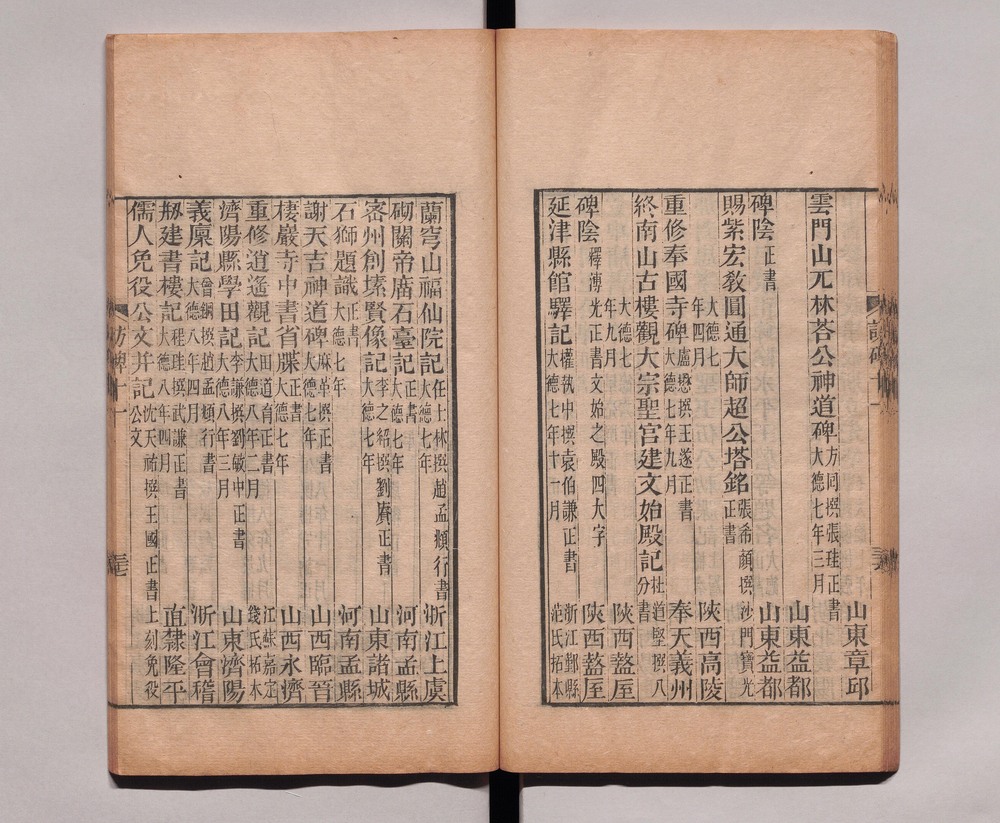 山東章邱
雲門山兀林荅公神道碑 方同撰張珪正書 大德七年三月 山東益都
碑陰 正書 山東益都
賜紫宏敎圓通大師超公塔銘 張希顏撰沙門寶光正書
大德七年四月 陝西高陵
重修奉國寺碑 盧懋撰王遂正書 大德七年九月 奉天義州
終南山古樓觀大宗聖宮建文始殿記 杜道堅撰八分書
大德七年九月 陝西盩厔
碑陰 釋溥光正書文始之殿四大字 陝西盩厔
延津縣館驛記 權執中撰袁伯謙正書 大德七年十一月 浙江鄞縣范氏拓本
蘭穹山福仙院記 任士林撰趙孟頫行書 大德七年 浙江上虞
砌關帝廟石臺記 正書 大德七年 河南孟縣
密州創塐賢像記 李之紹撰劉賡正書 大德七年 山東諸城
石獅題識 正書 大德七年 河南孟縣
謝天吉神道碑 麻革撰正書 大德七年 山西臨晉
棲巖寺中書省牒 正書 大德七年 山西永濟
重修逍遙觀記 田道育正書 大德八年二月 江蘇嘉定錢氏拓本
濟陽縣學田記 李謙撰劉敏中正書 大德八年三月 山東濟陽
義廩記 撰趙孟頫行書 大德八年四月 浙江會稽
剏建書樓記 程珪撰武謙正書 大德八年四月 直隸隆平
儒人免役公文幷記 沈天祐撰王國正書上刻免役公文
訪碑十一